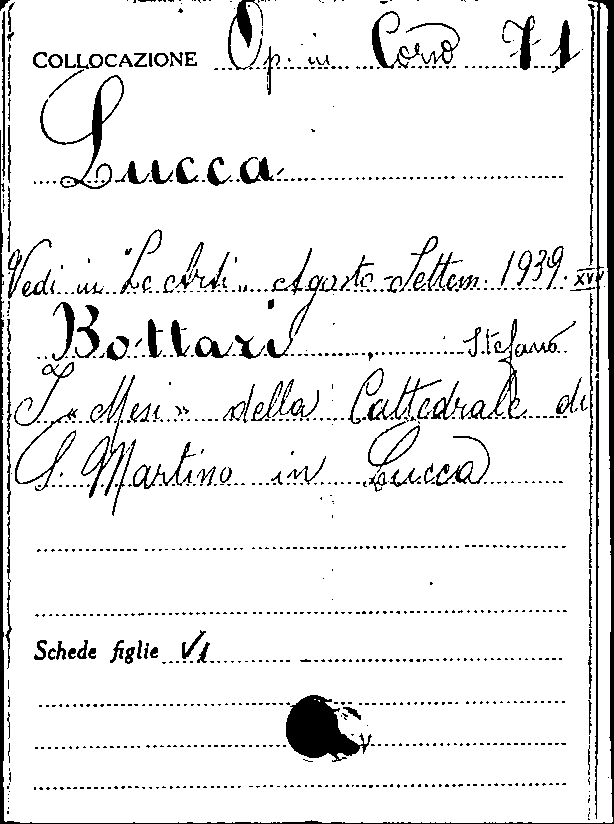 COLLOCAZIONE Op. in Corso 71
Lucca
Vedi in "Le Arti" Agosto-Settem. 1939. XVII
Bottari, Stefano
I «Mesi» della Cattedrale di
S. Martino in Lucca
Schede figlie V1